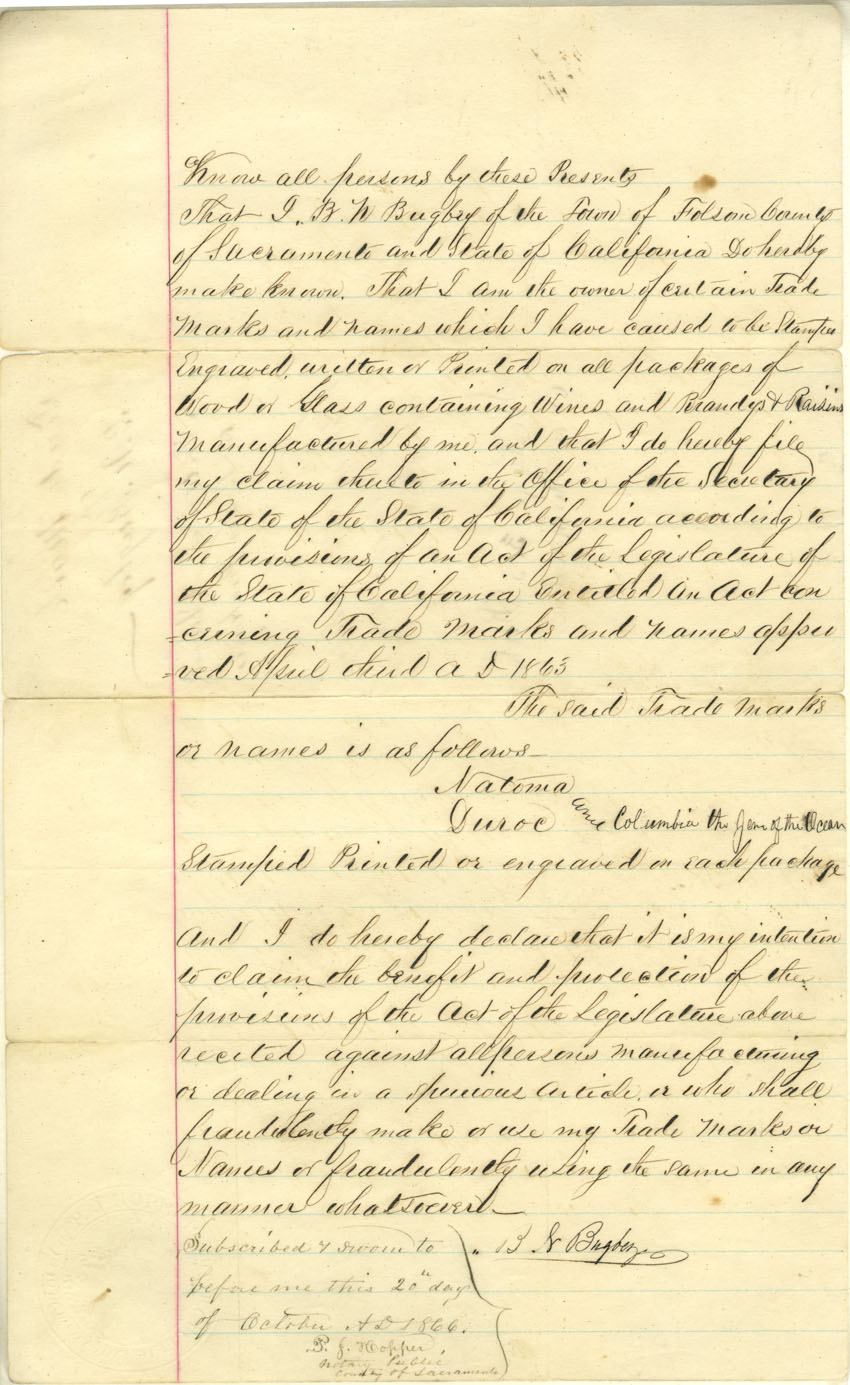 Know all persons by these Presents
That I, B. N Bugbey of the Town of Folsom County
of Sacramento and State of California Do hereby
make known. That I am the owner of certain Trade
Marks and names which I have caused to be Stamped
Engraved, written or Printed on all packages of
Wood or Glass containing Wines and Brandys & Raisins
Manufactured by me. and that I do hereby file
my claim thereto in the Office of the Secretary
of State of the State of California according to
the provisions of an Act of the Legislature of
the State of California Entitled An Act con
=cerning Trade Marks and Names appro
=ved April third A D 1863
The said Trade Marks
or names is as follows—
Natoma
Duroc and Columbia the Jem of the Ocean
Stamped Printed or engraved on each package
And I do hereby declare that it is my intention
to claim the benefit and protection of the
provisions of the Act of the Legislature above
recited against all persons manufacturing
or dealing in a spurious Article, or who shall
fraudulently make or use my Trade Marks or
Names or fraudulently using the same in any
manner whatsoever—
Subscribed & sworn to
before me this 20th day
of October A D 1866.
P. J. Hopper,
Notary Public
County of Sacramento
B N Bugbey